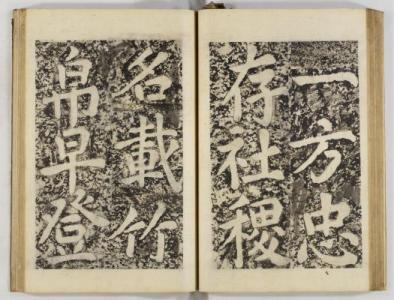 一方忠
存社稷
名載竹
帛早登